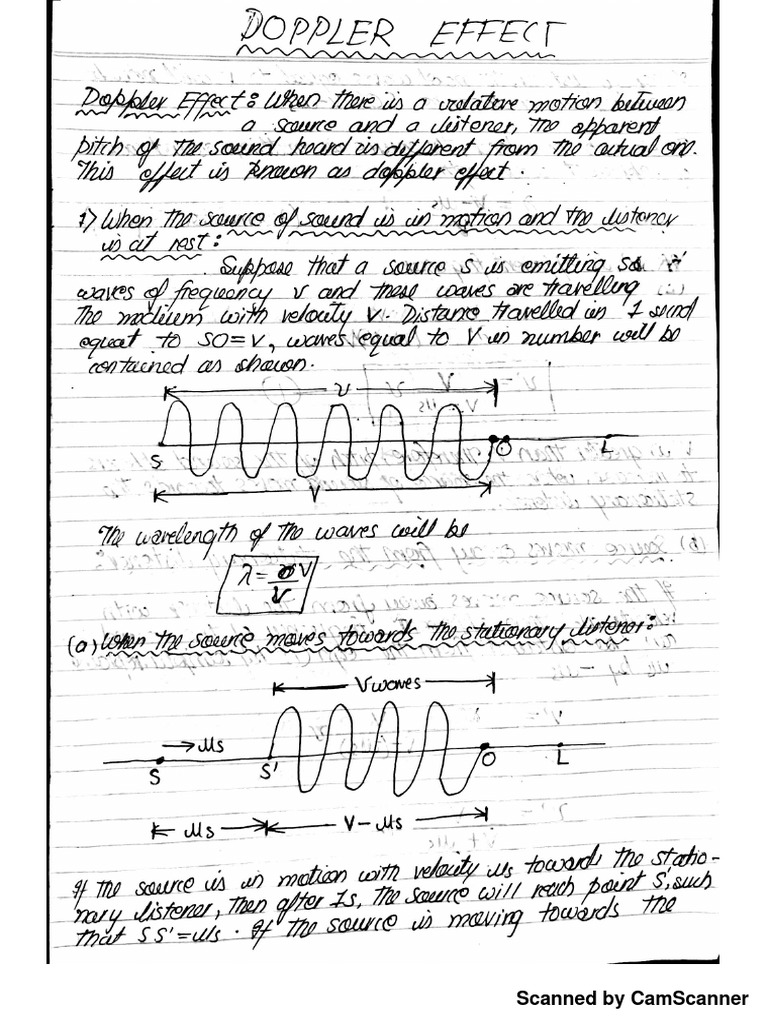 DOPPLER EFFECT
Doppler Effect: When there is a relative motion between
a source and a listener, the apparent
pitch of the sound heard is different from the actual one.
This effect is known as doppler effect.
1) When the source of sound is in motion and the listener
is at rest:
Suppose that a source S is emitting
waves of frequency ν and these waves are travelling
the medium with velocity V. Distance travelled in 1
equal to SO=V, waves equal to V in number will be
contained as shown.
ν
S O L
V
The wavelength of the waves will be
λ = V/ν
(a) When the source moves towards the stationary listener:
V waves
→ Us
S S' O L
Us V-Us
If the source is in motion with velocity Us towards the statio-
nary listener, then after 1s, the source will reach point S', such
that SS'=Us. If the source is moving towards the
Scanned by CamScanner